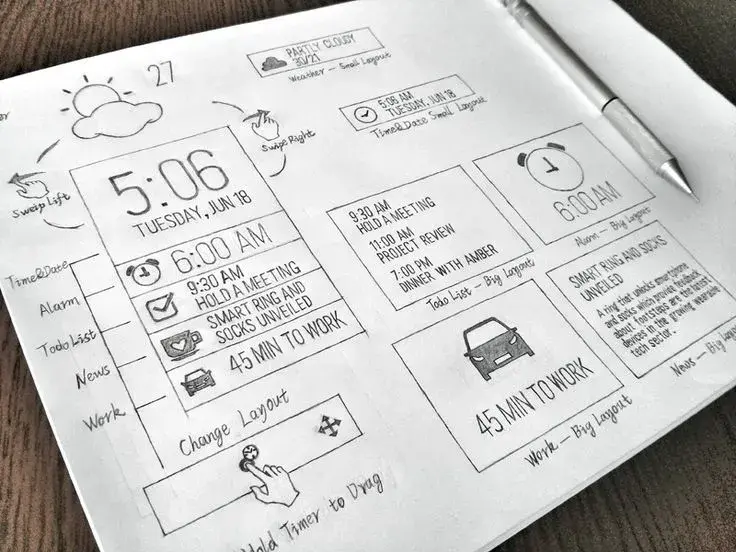 27
PARTLY CLOUDY
30/21
Weather — Small Layout
5:06 AM
TUESDAY, JUN 18
Time&Date Small Layout
Swipe Right
Sweip Lift
5:06
TUESDAY, JUN 18
6:00 AM
9:30 AM
HOLD A MEETING
SMART RING AND
SOCKS UNVEILED
45 MIN TO WORK
Time&Date
Alarm
Todo List
News
Work
Change Layout
Hold Timer to Drag
9:30 AM
HOLD A MEETING
11:00 AM
PROJECT REVIEW
7:00 PM
DINNER WITH AMBER
Todo List — Big Layout
6:00 AM
Alarm — Big Layout
SMART RING AND SOCKS
UNVEILED
A ring that unlocks smartphone
and socks which provide feedback
about footsteps are the latest
devices in the growing wearable
tech sector.
News — Big
45 MIN TO WORK
Work — Big Layout